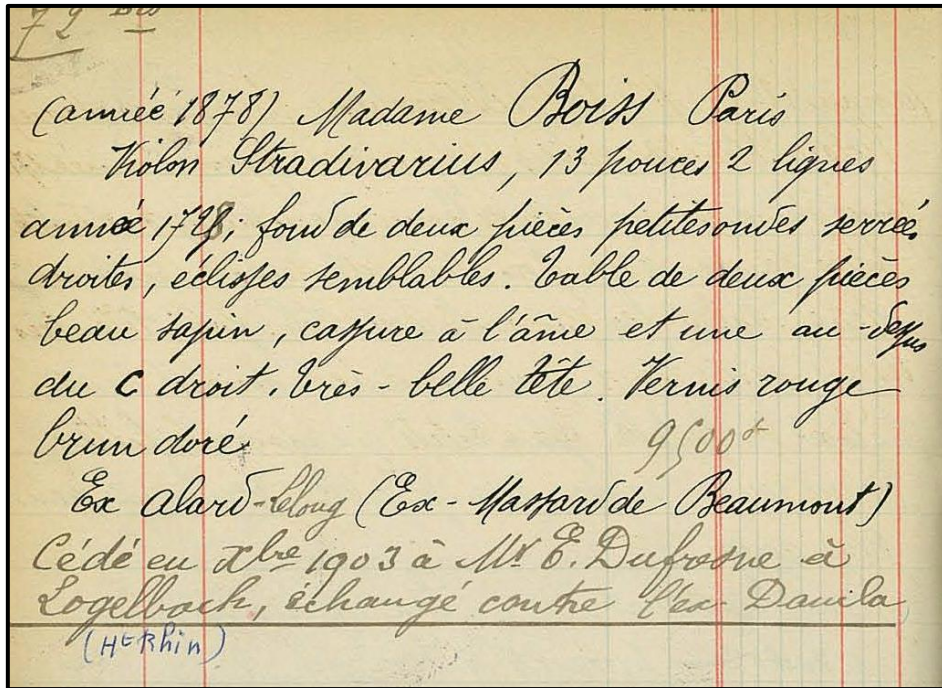 72 Bis
(année 1878) Madame Boiss Paris
Violon Stradivarius, 13 pouces 2 lignes
année 1728; fond de deux pièces petites ondes serrées
droites, éclisses semblables. Table de deux pièces
beau sapin, cassure à l'âme et une au-dessus
du C droit. Très-belle tête. Vernis rouge
brun doré. 9500 f
Ex Alard-Leloug (Ex-Massard de Beaumont)
Cédé en Xbre 1903 à Mr E. Dufresne à
Logelbach, échangé contre l'ex-Davila
(Ht Rhin)